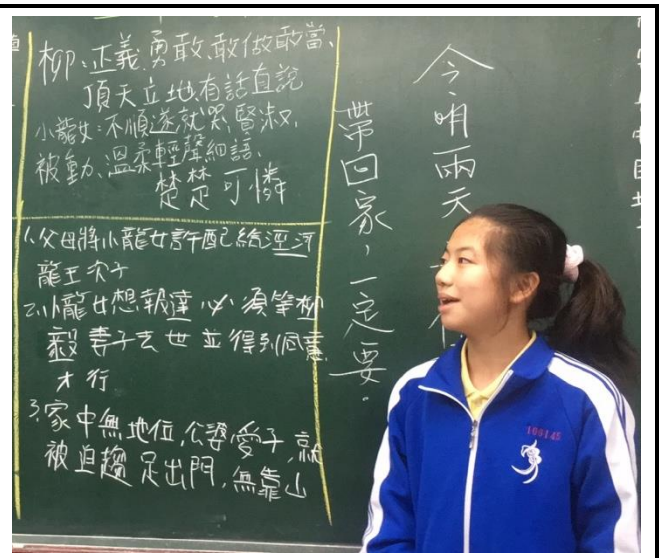 柳:正義、勇敢、敢做敢當、
頂天立地、有話直說
小龍女:不順遂就哭、賢淑、
被動、溫柔輕聲細語、
楚楚可憐
1.父母將小龍女許配給涇河
龍王次子
2.小龍女想報達必須等柳
毅妻子去世並得到同意
才行
3.家中無地位,公婆愛子,就
被迫趕足出門,無靠山
今明兩天
帶回家,一定要。
109145